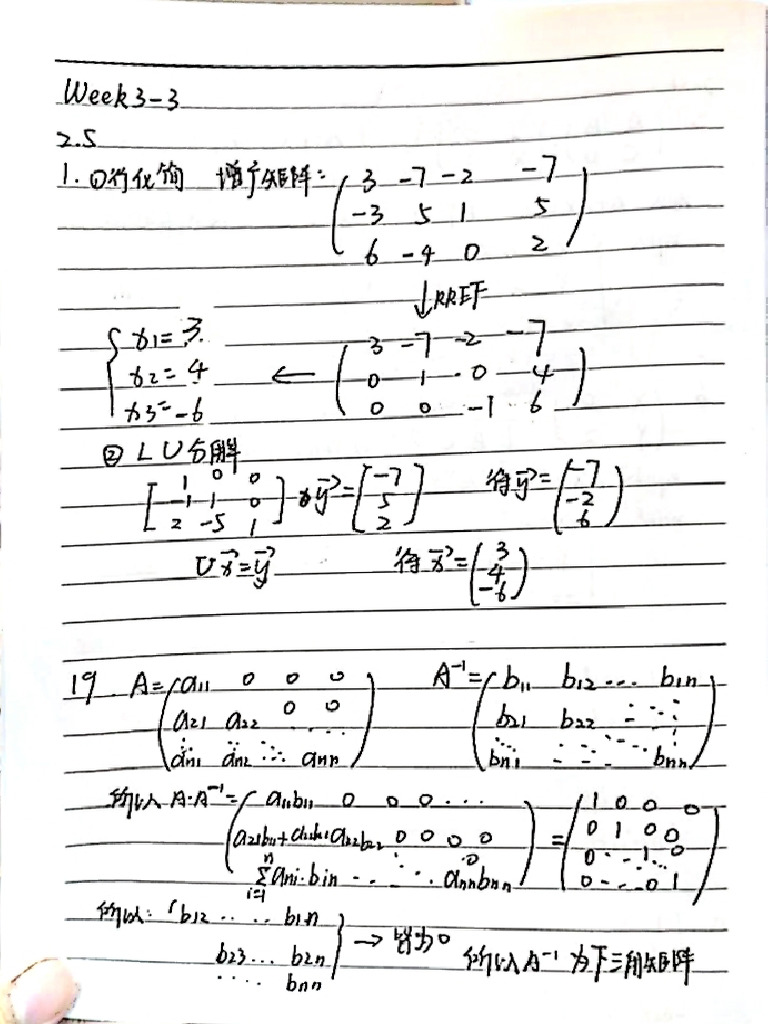 Week3-3
2.5
1. ①行化简 增广矩阵: ( 3 -7 -2 -7
-3 5 1 5
6 -4 0 2 )
↓RREF
{ x1=3 ← ( 3 -7 -2 -7
x2=4 0 1 0 4
x3=-6 0 0 -1 6 )
② LU分解
[ 1 0 0
-1 1 0
2 -5 1 ] y⃗= [ -7
5
2 ] 得y⃗= ( -7
-2
6 )
Ux⃗=y⃗ 得x⃗= ( 3
4
-6 )
19. A= ( a11 0 0 0
a21 a22 0 0
an1 an2 ... ann ) A⁻¹= ( b11 b12 ... b1n
b21 b22 ...
bn1 ... bnn )
所以 A·A⁻¹= ( a11b11 0 0 0 ...
a21b11+ a22b22 0 0 0 0
∑ni=1 ani·bin ... annbnn ) = ( 1 0 0 0
0 1 0 0
0 ... 1 0
0 ... 0 1 )
所以: b12 ... b1n
b23 ... b2n
... bnn } → 皆为0 所以A⁻¹ 为下三角矩阵